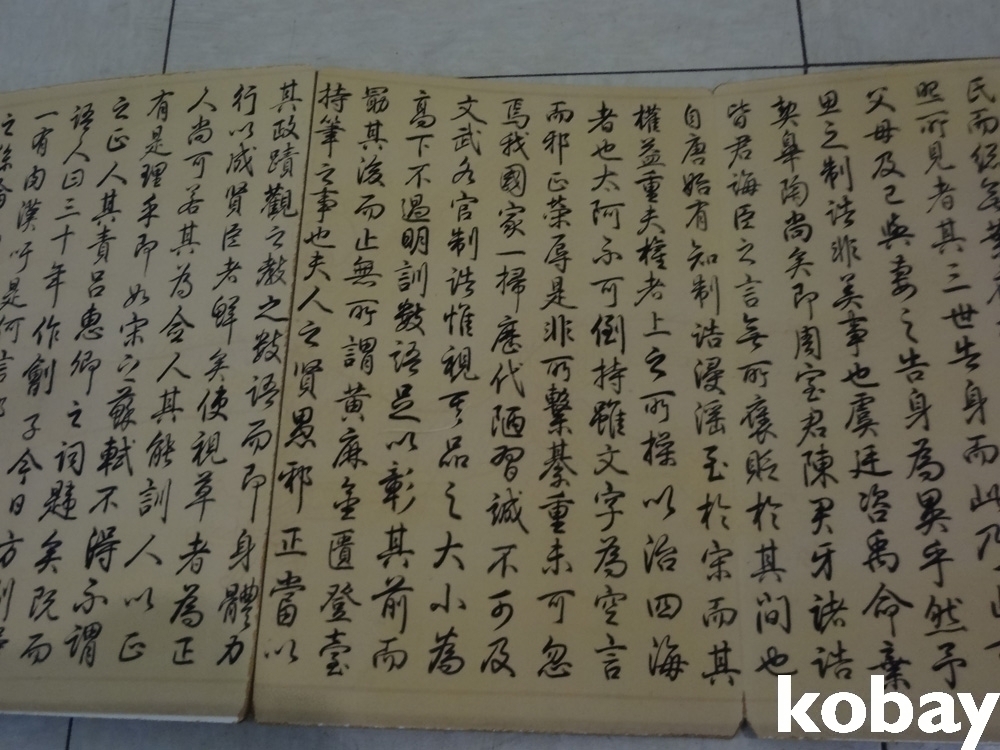 照所見者其三世告身而
父母及己與妻之告身為異乎然予
思之制誥非美事也虞廷咨禹命棄
契皋陶尚矣即周室君陳君牙諸誥
皆君誨臣之言無所褒貶於其間也
自唐始有知制誥浸淫至於宋而其
權益重夫權者上之所操以治四海
者也太阿不可倒持雖文字為空言
而邪正榮辱是非所繫綦重未可忽
焉我國家一掃歷代陋習誠不可及
文武各官制誥惟視其品之大小為
高下不過明訓數語足以彰其前而
勗其後而止無所謂黃麻金匱登臺
持筆之事也夫人之賢愚邪正當以
其政蹟觀之教之數語而即身體力
行以成賢臣者鮮矣使視草者為正
人尚可若其為僉人其能訓人以正
有是理乎即如宋之蘇軾不得不謂
之正人其責呂惠卿之詞韙矣既而
語人曰三十年作劊子今日方
一有肉漢吁是何言
kobay